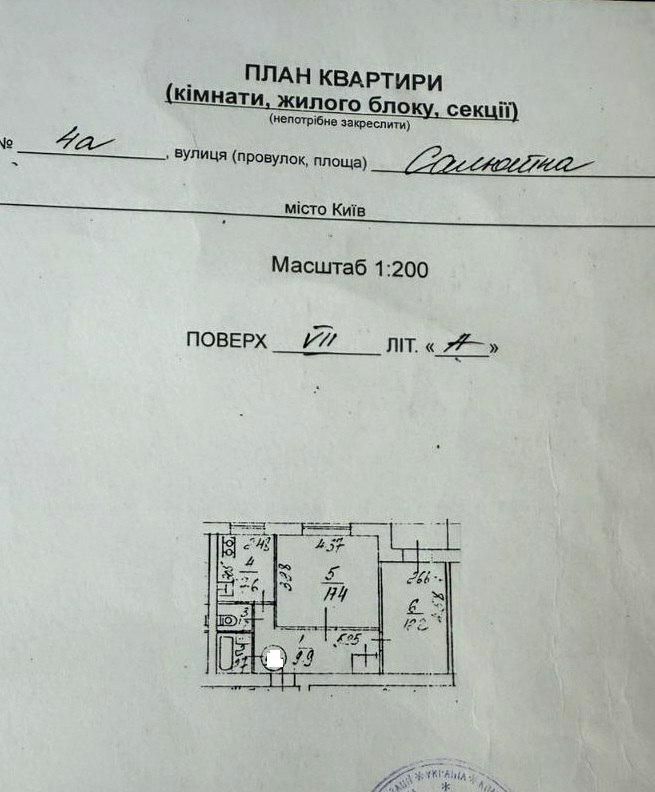 ПЛАН КВАРТИРИ
(кімнати, жилого блоку, секції)
(непотрібне закреслити)
№ 4а, вулиця (провулок, площа) Салютна
місто Київ
Масштаб 1:200
ПОВЕРХ VII ЛІТ. «А»
2.43
4.37
4
7.6
3.98
5
17.4
2.66
6
12.2
4.58
3
1
9.9
5.25
УКРАЇНА